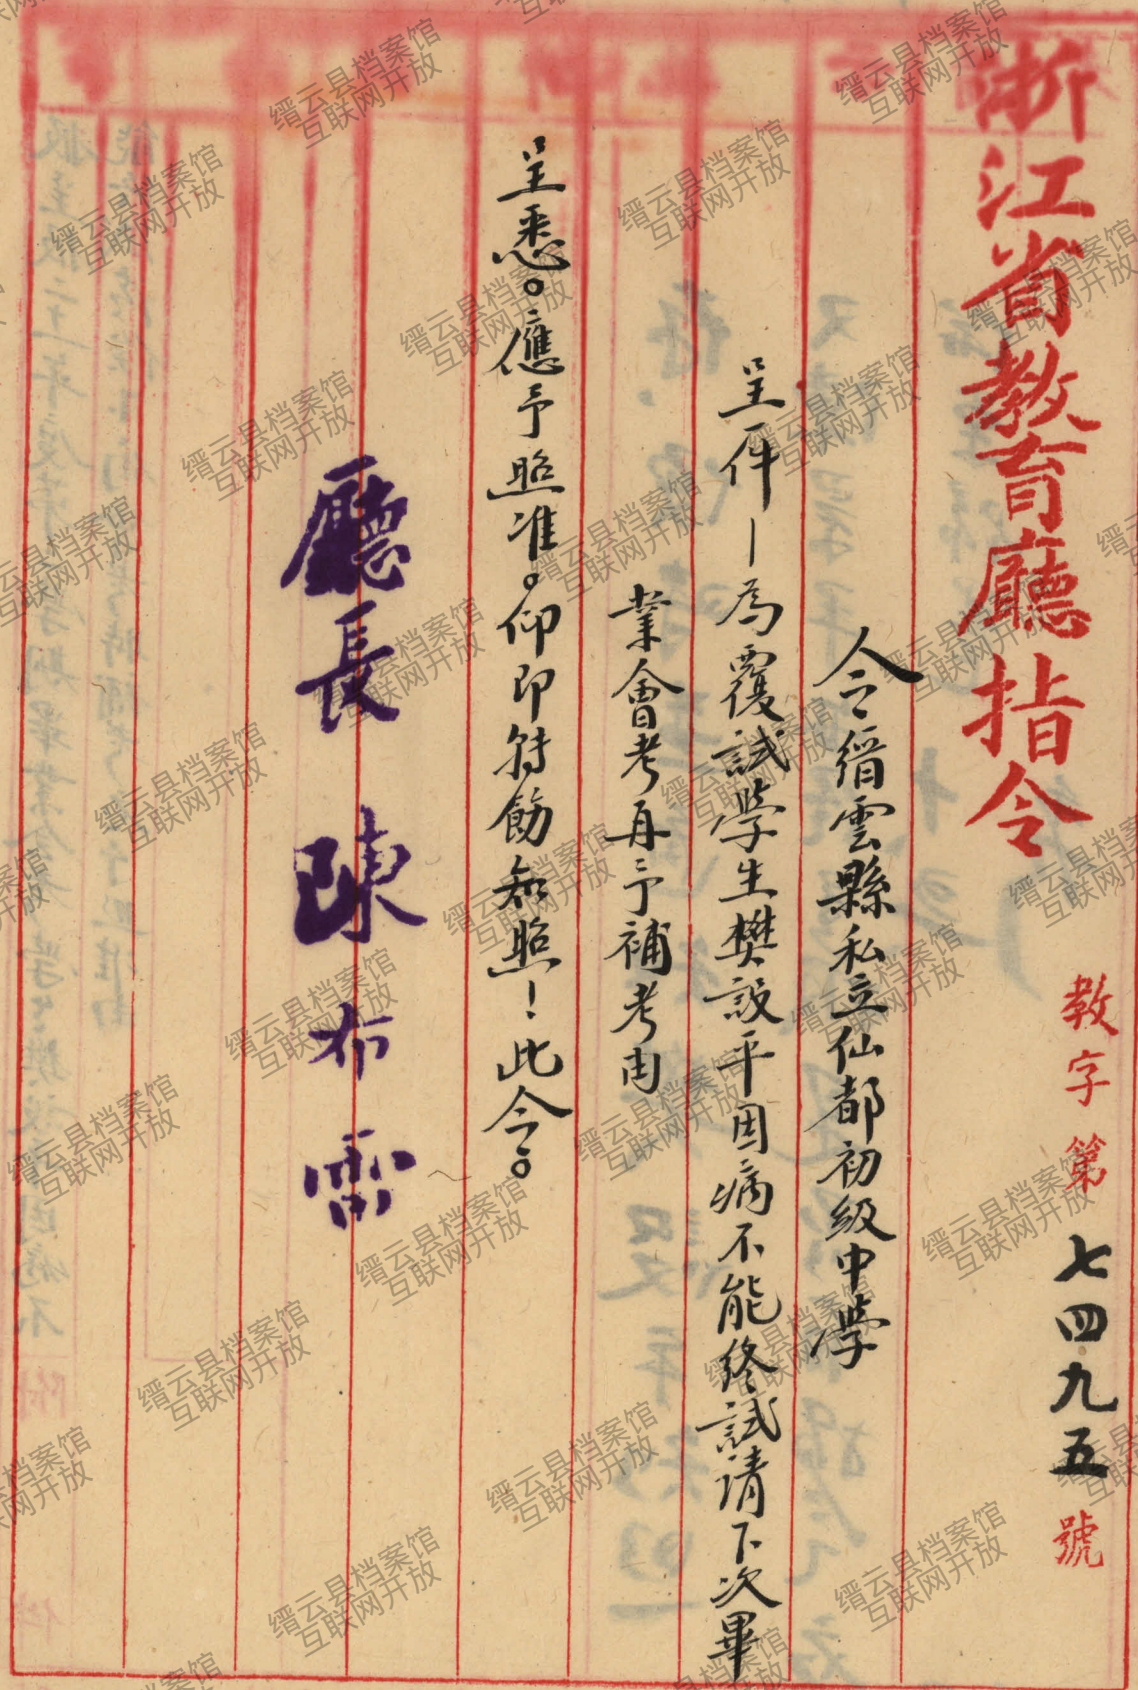 浙江省教育廳指令
教字第七四九五號
令縉雲縣私立仙都初級中學
呈件一為覆試學生樊設平因病不能終試請下次畢
業會考再予補考由
呈悉。應予照准。仰即轉飭知照！此令。
廳長陳布雷
缙云县档案馆
互联网开放